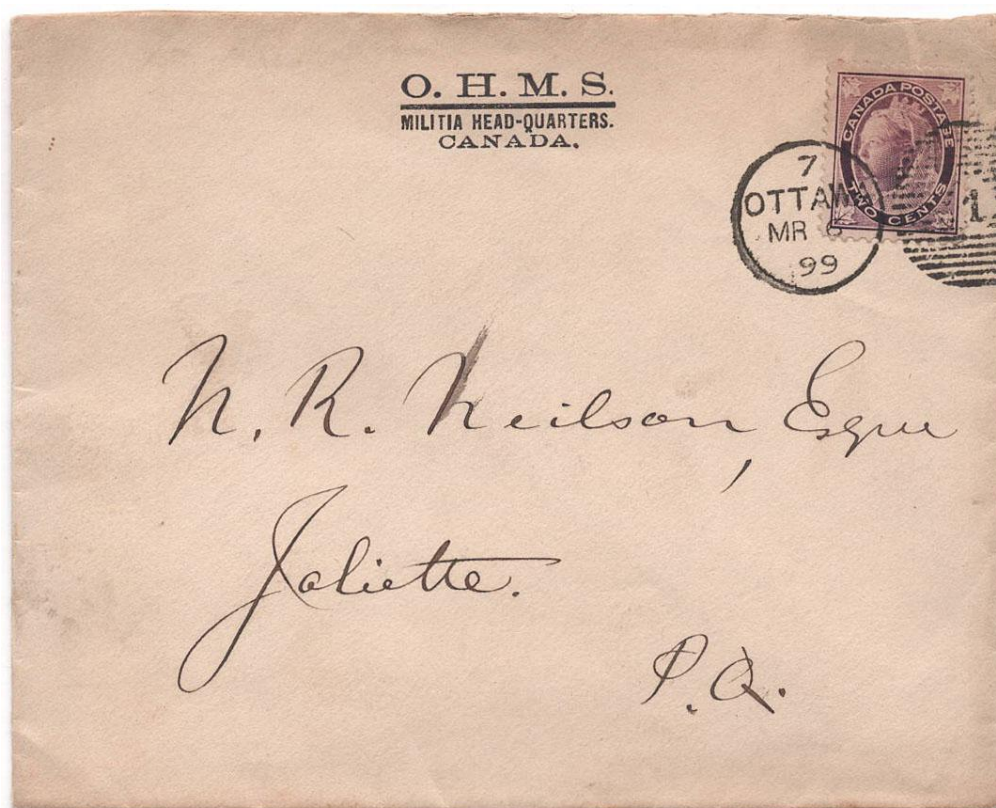 O. H. M. S.
MILITIA HEAD-QUARTERS.
CANADA.
CANADA POSTAGE
TWO CENTS
7
OTTAW
MR 6
99
1
N. R. Neilson, Esque
Joliette.
P.Q.